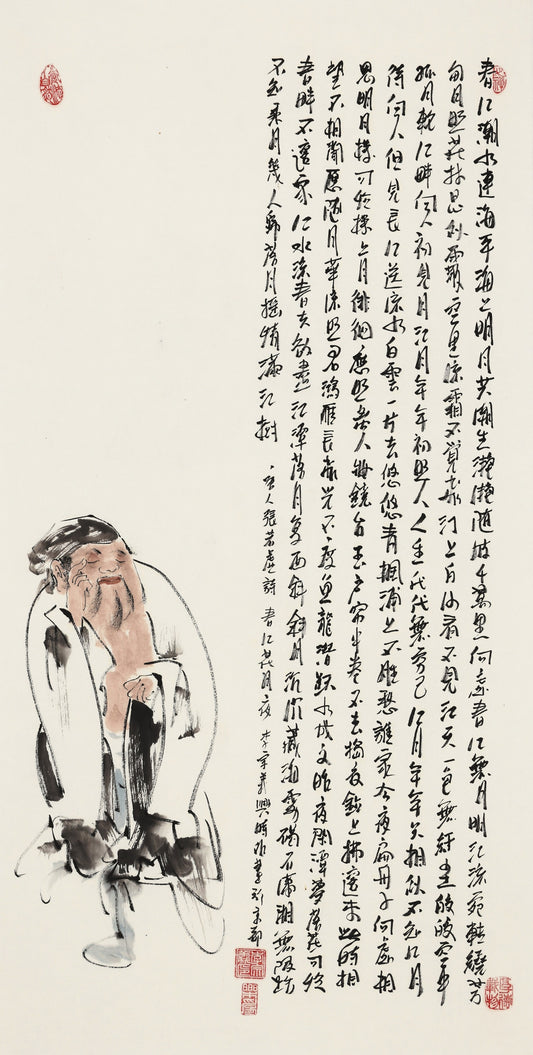 春江潮水連海平海上明月共潮生灧灧随波千萬里何處春江無月明江流宛轉繞芳
甸月照花林皆似霰空里流霜不覺飛汀上白沙看不見江天一色無纤塵皎皎空中
孤月輪江畔何人初見月江月年年初照人人生代代無窮已江月年年只相似不知江月
待何人但見長江送流水白雲一片去悠悠青楓浦上不勝愁誰家今夜扁舟子何處相
思明月樓可憐樓上月徘徊應照離人妝鏡台玉戶帘中卷不去搗衣砧上拂還来此時相
望不相聞願随月華流照君鴻雁長飛光不度魚龍潜躍水成文昨夜閑潭夢落花可憐
春畔不還家江水流春去欲盡江潭落月復西斜斜月沉沉藏海霧碣石潇湘無限路
不知乘月幾人歸落月摇情滿江樹
唐人張若虚詩春江花月夜